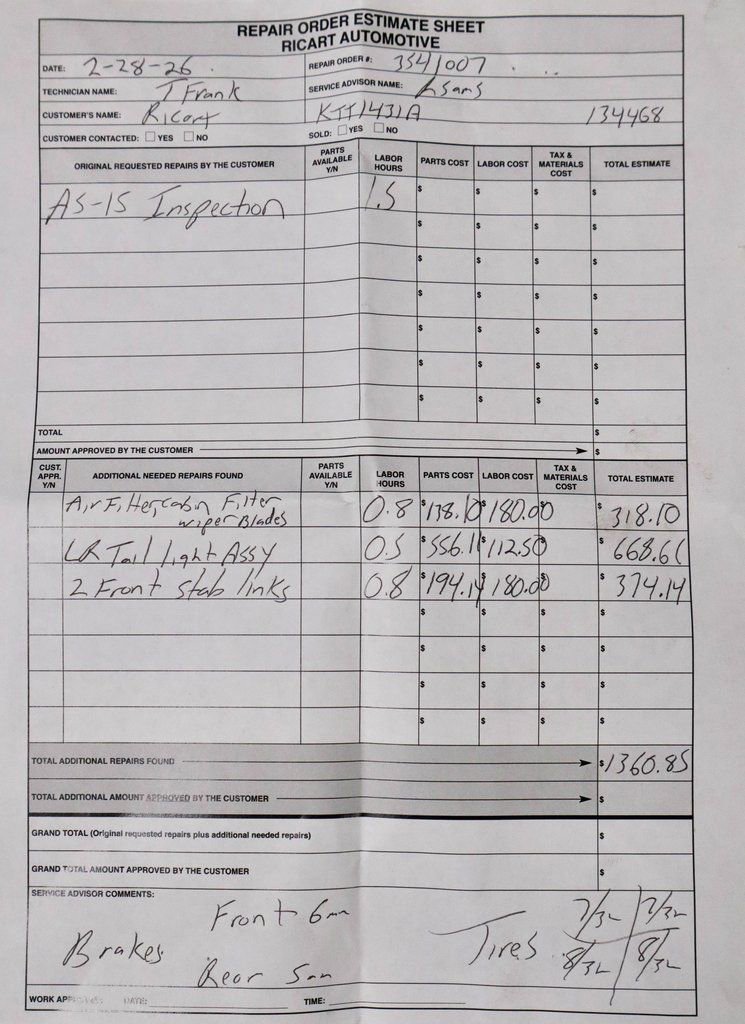 REPAIR ORDER ESTIMATE SHEET
RICART AUTOMOTIVE
DATE: 2-28-26 REPAIR ORDER #: 3541007
TECHNICIAN NAME: T Frank SERVICE ADVISOR NAME:
CUSTOMER'S NAME: Ricart KTT1431A 134468
CUSTOMER CONTACTED: ☐ YES ☐ NO SOLD: ☐ YES ☐ NO
ORIGINAL REQUESTED REPAIRS BY THE CUSTOMER PARTS AVAILABLE Y/N LABOR HOURS PARTS COST LABOR COST TAX & MATERIALS COST TOTAL ESTIMATE
AS-IS Inspection 1.5 $ $ $ $
$ $ $ $
$ $ $ $
$ $ $ $
$ $ $ $
$ $ $ $
$ $ $ $
TOTAL $
AMOUNT APPROVED BY THE CUSTOMER $
CUST. APPR. Y/N ADDITIONAL NEEDED REPAIRS FOUND PARTS AVAILABLE Y/N LABOR HOURS PARTS COST LABOR COST TAX & MATERIALS COST TOTAL ESTIMATE
Air Filter, cabin Filter
wiper Blades 0.8 $138.10 $180.00 $ $318.10
LR Tail light Assy 0.5 $556.11 $112.50 $ $668.61
2 Front stab links 0.8 $194.14 $180.00 $ $374.14
$ $ $ $
$ $ $ $
$ $ $ $
$ $ $ $
TOTAL ADDITIONAL REPAIRS FOUND $1360.85
TOTAL ADDITIONAL AMOUNT APPROVED BY THE CUSTOMER $
GRAND TOTAL (Original requested repairs plus additional needed repairs) $
GRAND TOTAL AMOUNT APPROVED BY THE CUSTOMER $
SERVICE ADVISOR COMMENTS:
Front 6mm 7/32 7/32
Brakes Tires
Rear 5mm 8/32 8/32
WORK DATE: TIME: